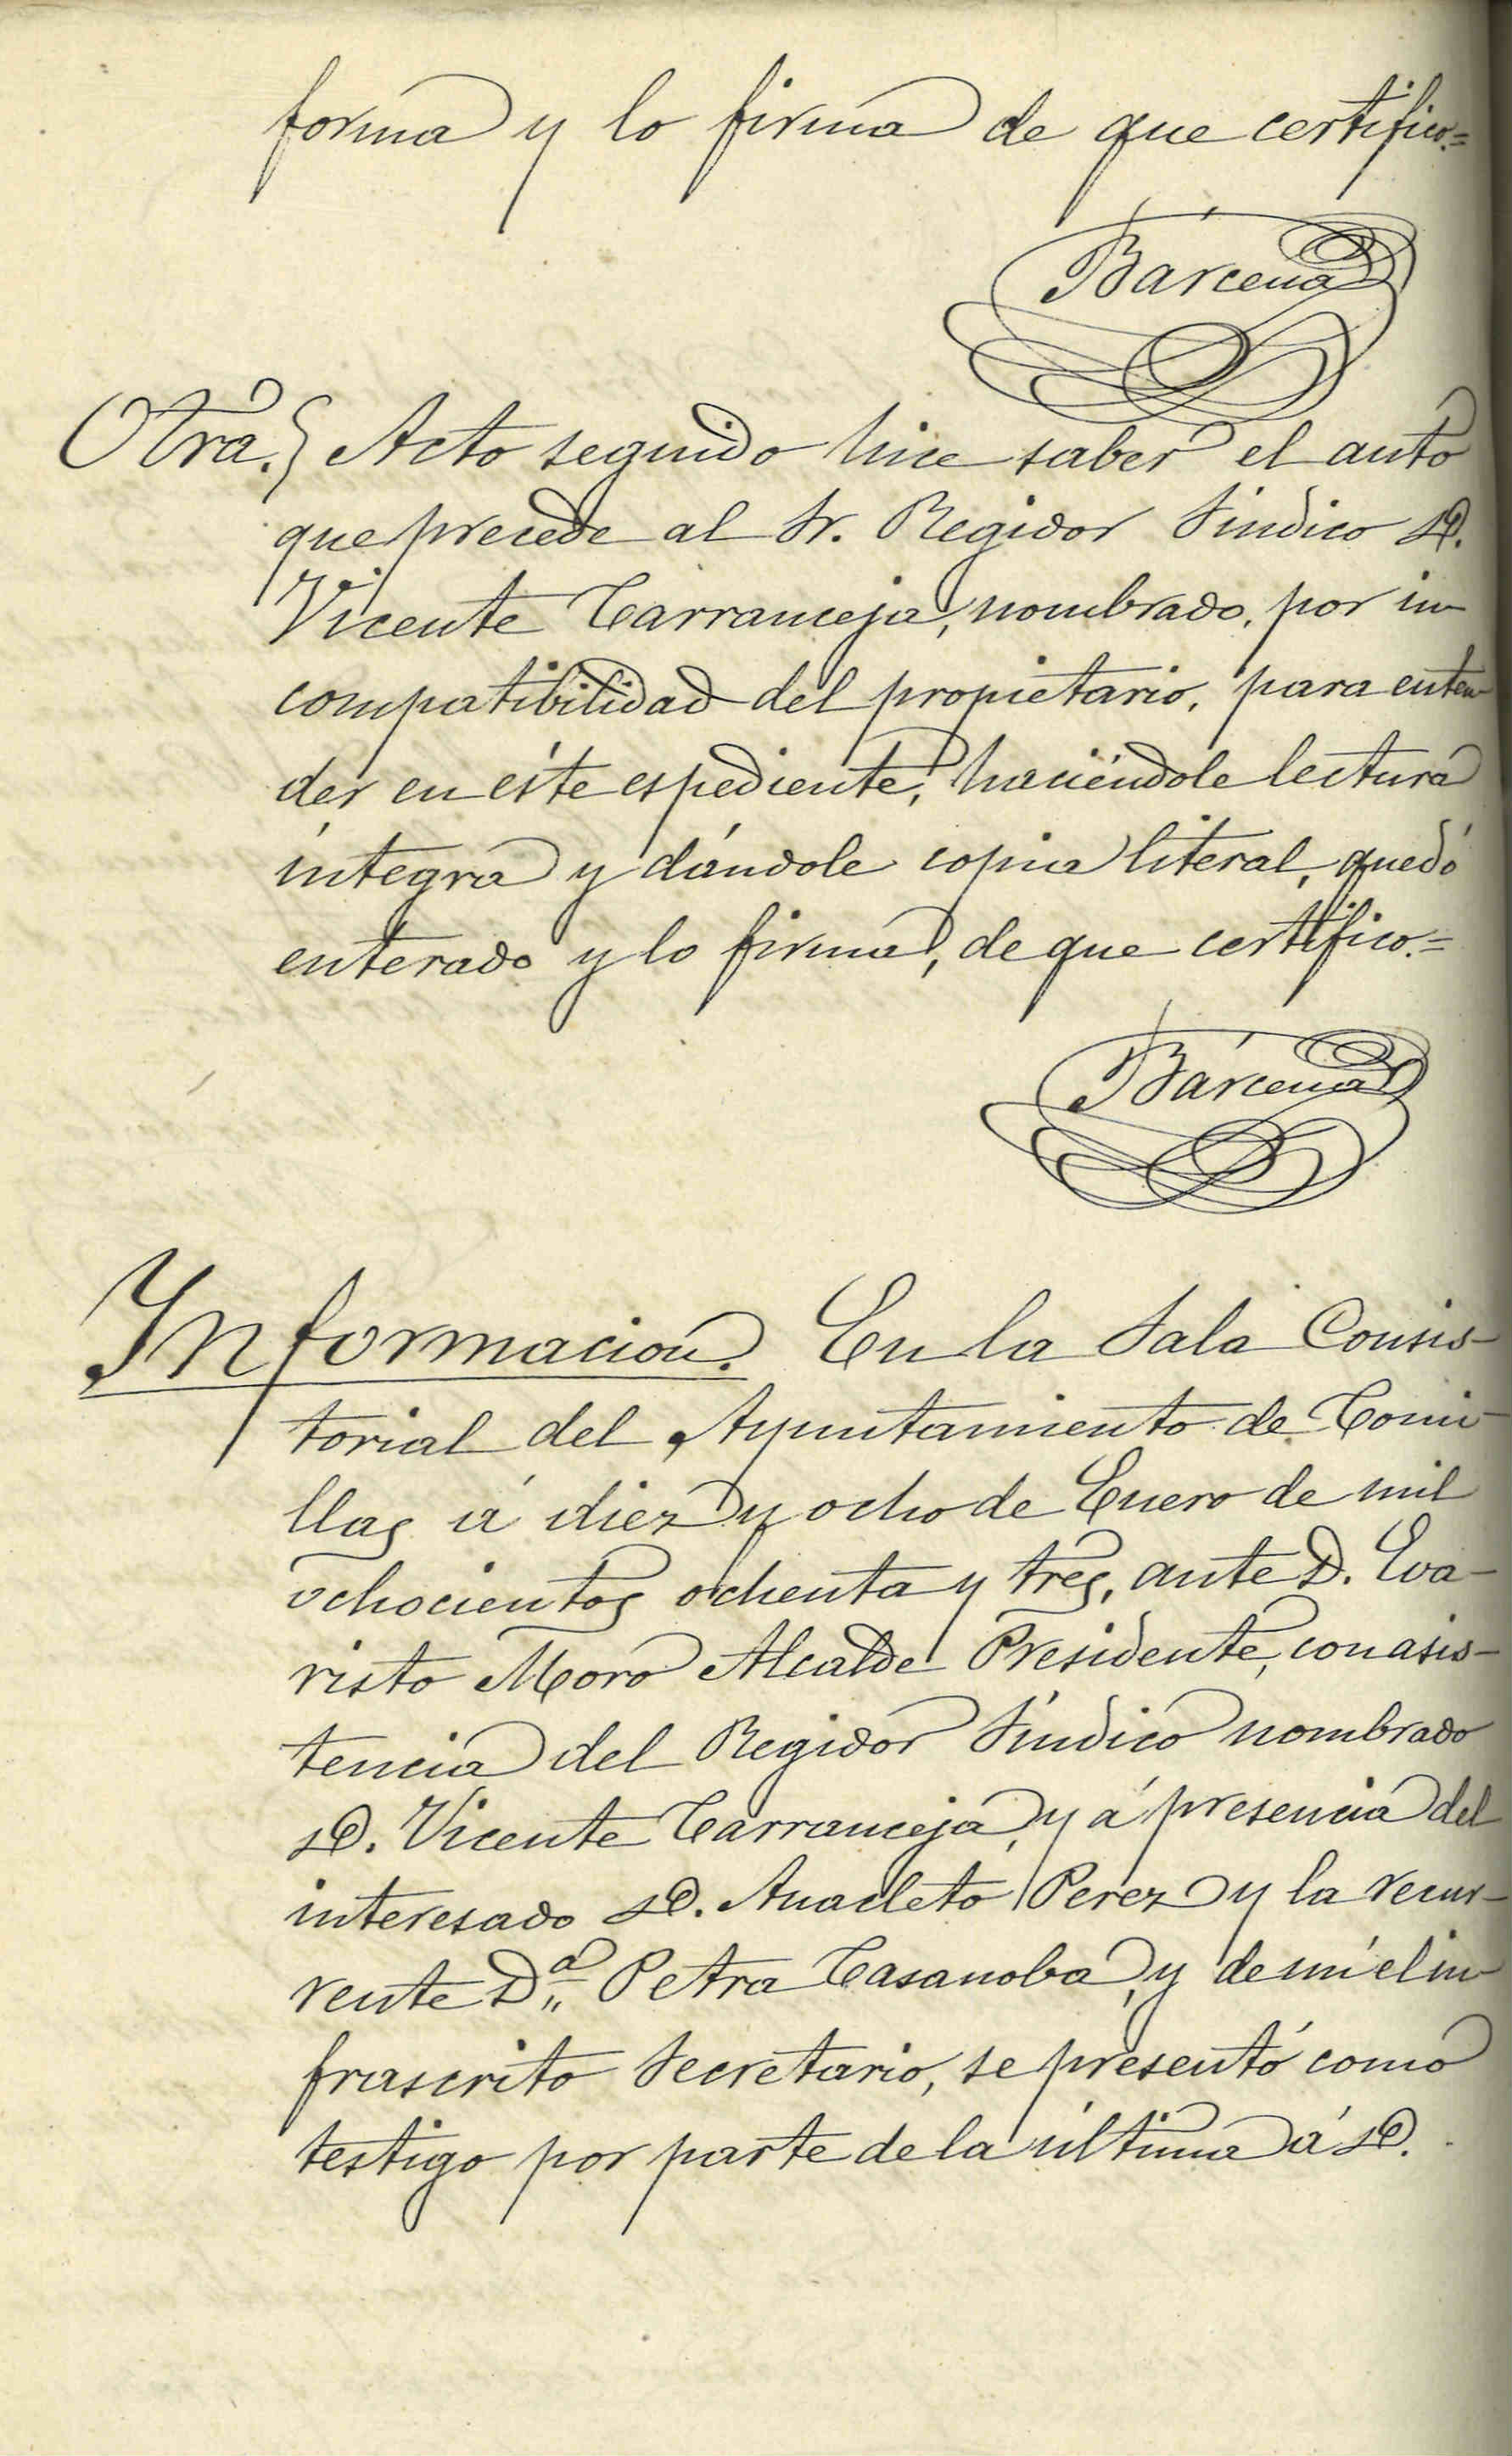 forma y lo firma de que certifico.=
Bárcena
Otra.} Acto seguido hice saber el auto
que precede al Sr. Regidor Síndico D.
Vicente Carranceja, nombrado, por in-
compatibilidad del propietario, para enten-
der en éste espediente, haciéndole lectura
íntegra y dándole copia literal, quedó
enterado y lo firma, de que certifico.=
Bárcena
Informacion. En la Sala Consis-
torial del Ayuntamiento de Comi-
llas á diez y ocho de Enero de mil
ochocientos ochenta y tres, ante D. Eva-
risto Moro Alcalde Presidente, con asis-
tencia del Regidor Síndico nombrado
D. Vicente Carranceja, y á presencia del
interesado D. Anacleto Perez y la recur-
rente D.ª Petra Casanoba, y de mí el in-
frascrito Secretario, se presentó como
testigo por parte de la última á D.